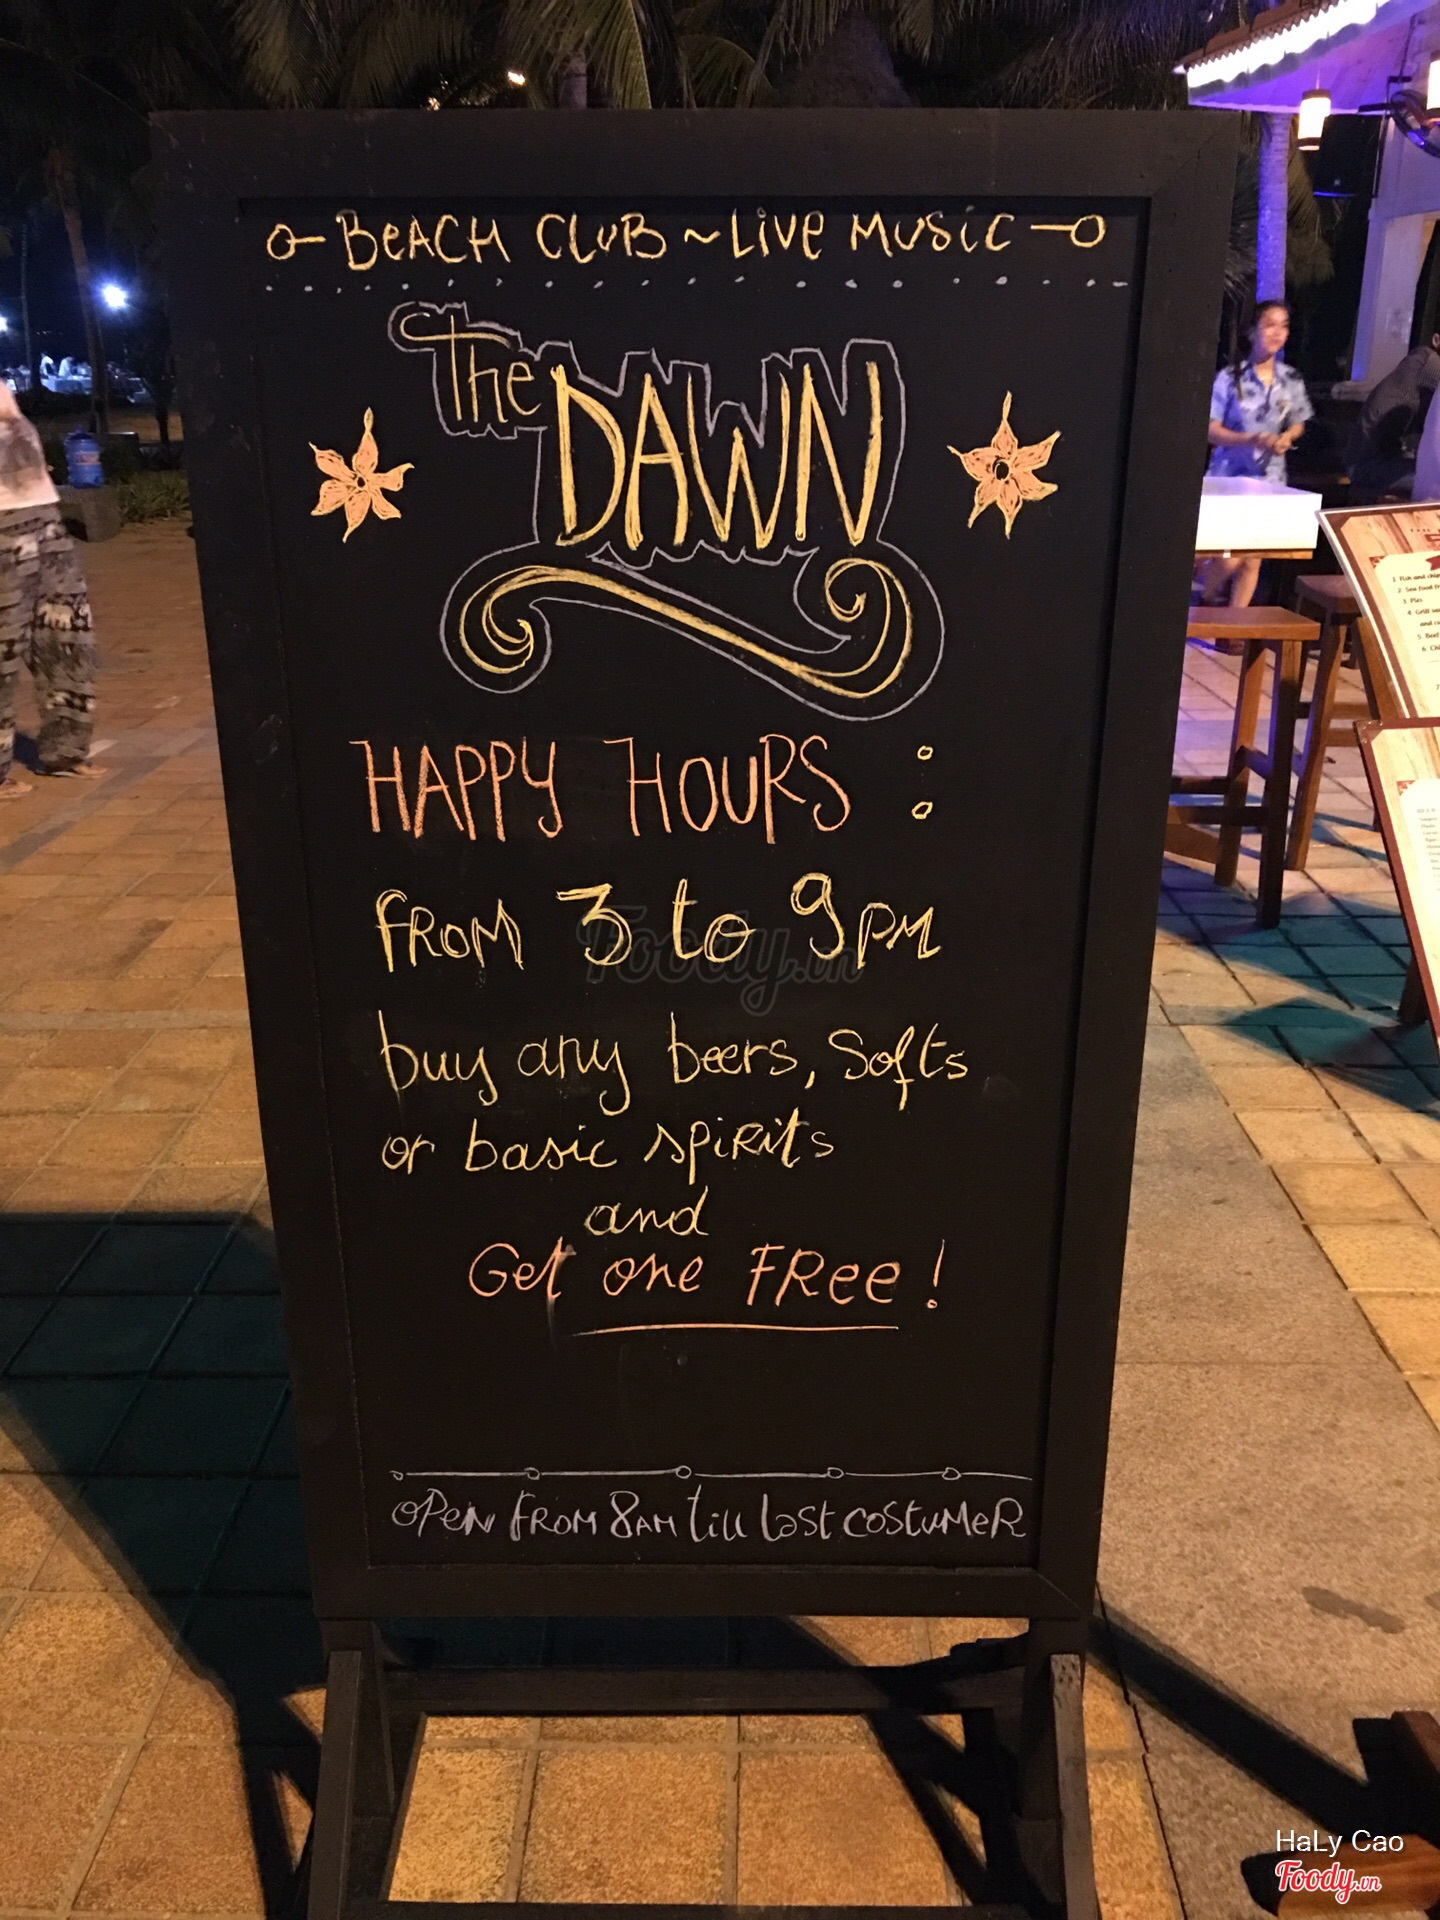 BeACH CLUB ~ Live MUSiC
The DAWN
HAPPY HOURS :
FROM 3 to 9PM
buy any beers, Softs
or basic spirits
and
Get one FRee !
OPeN FROM 8AM till last COStuMeR
Foody.vn
1. Fish and chips
3. Pies
HaLy Cao
Foody.vn